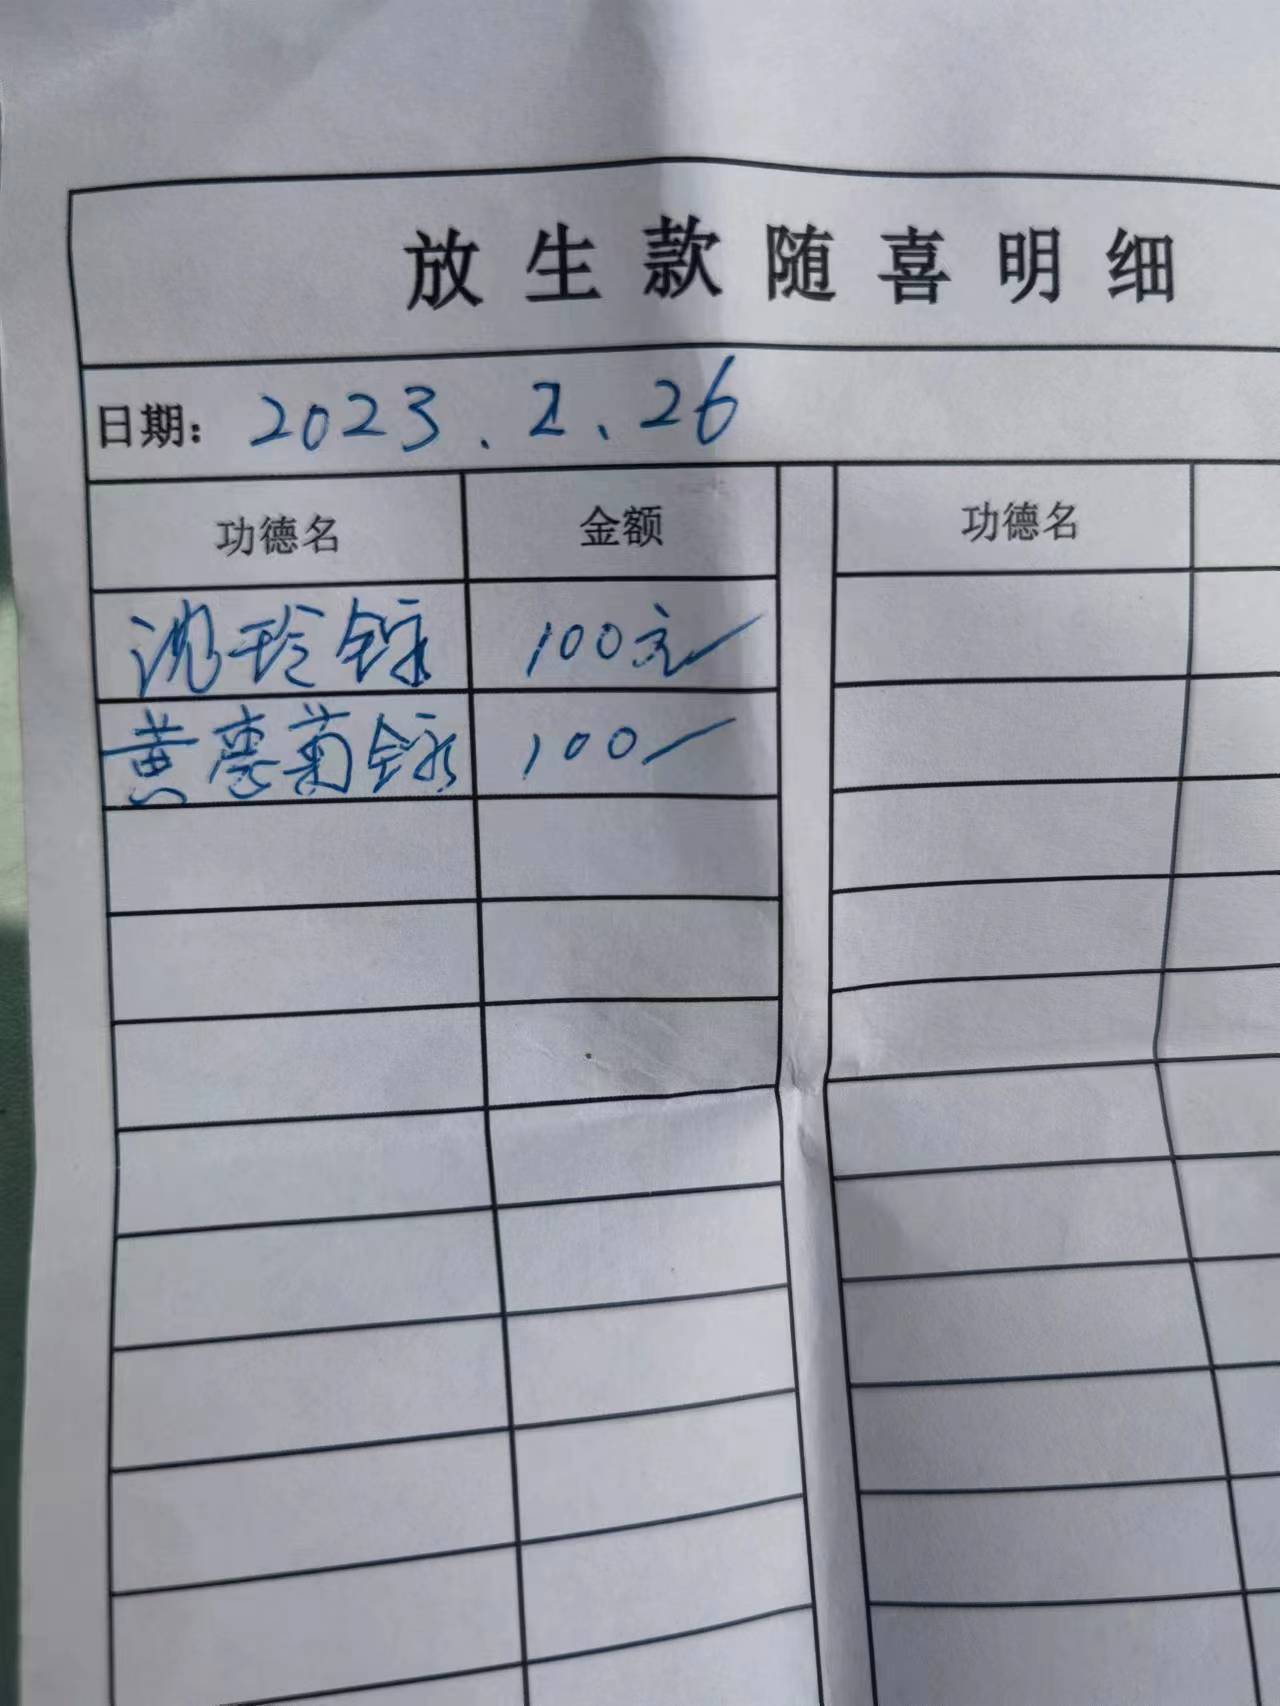 放生款随喜明细
日期: 2023.2.26
功德名 金额 功德名
沈玲 100元
黄惠菊 100